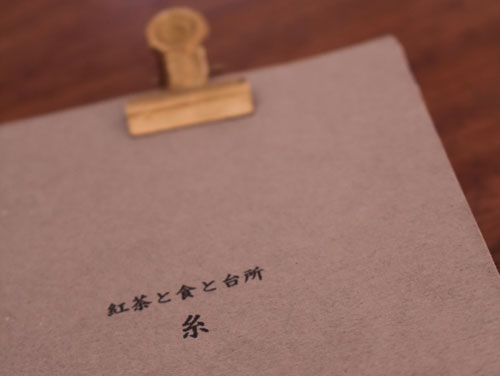 紅茶と食と台所
糸